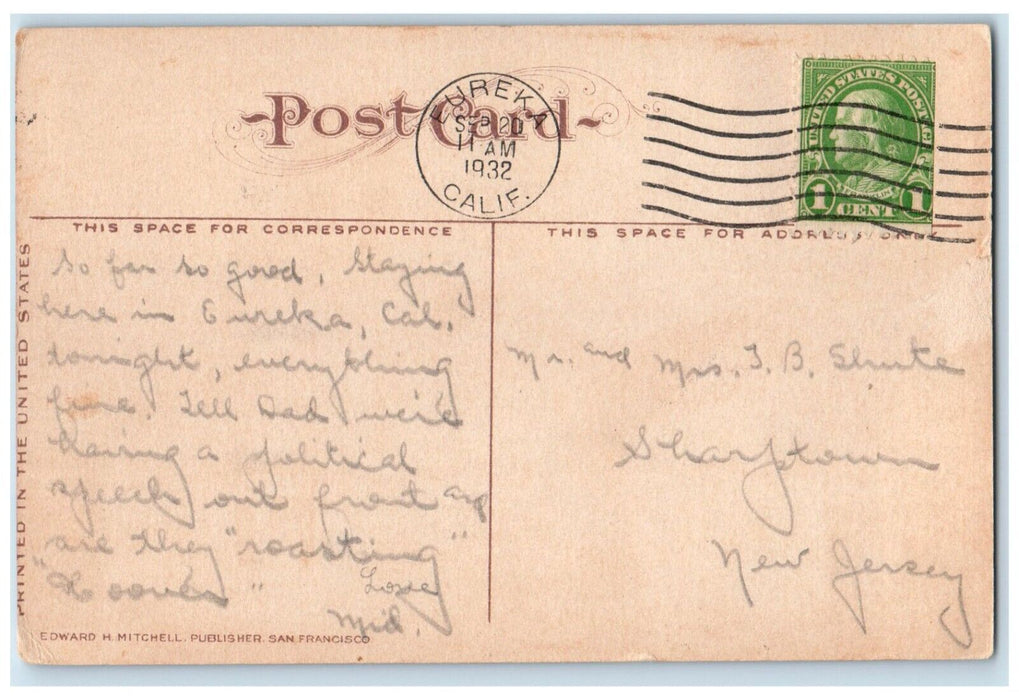 Post Card
EUREKA
SEP 20
11 AM
1932
CALIF.
UNITED STATES POSTAGE
FRANKLIN
1 CENT 1
THIS SPACE FOR CORRESPONDENCE
THIS SPACE FOR ADDRESS ONLY
PRINTED IN THE UNITED STATES
So far so good, Staying
here in Eureka, Cal.
tonight, everything
fine. Tell Dad we're
having a political
speech out front and
are they "roasting"
"Hoover"
Love
Mid.
Mr. and Mrs. J. B. Shute
Sharptown
New Jersey
EDWARD H. MITCHELL, PUBLISHER, SAN FRANCISCO